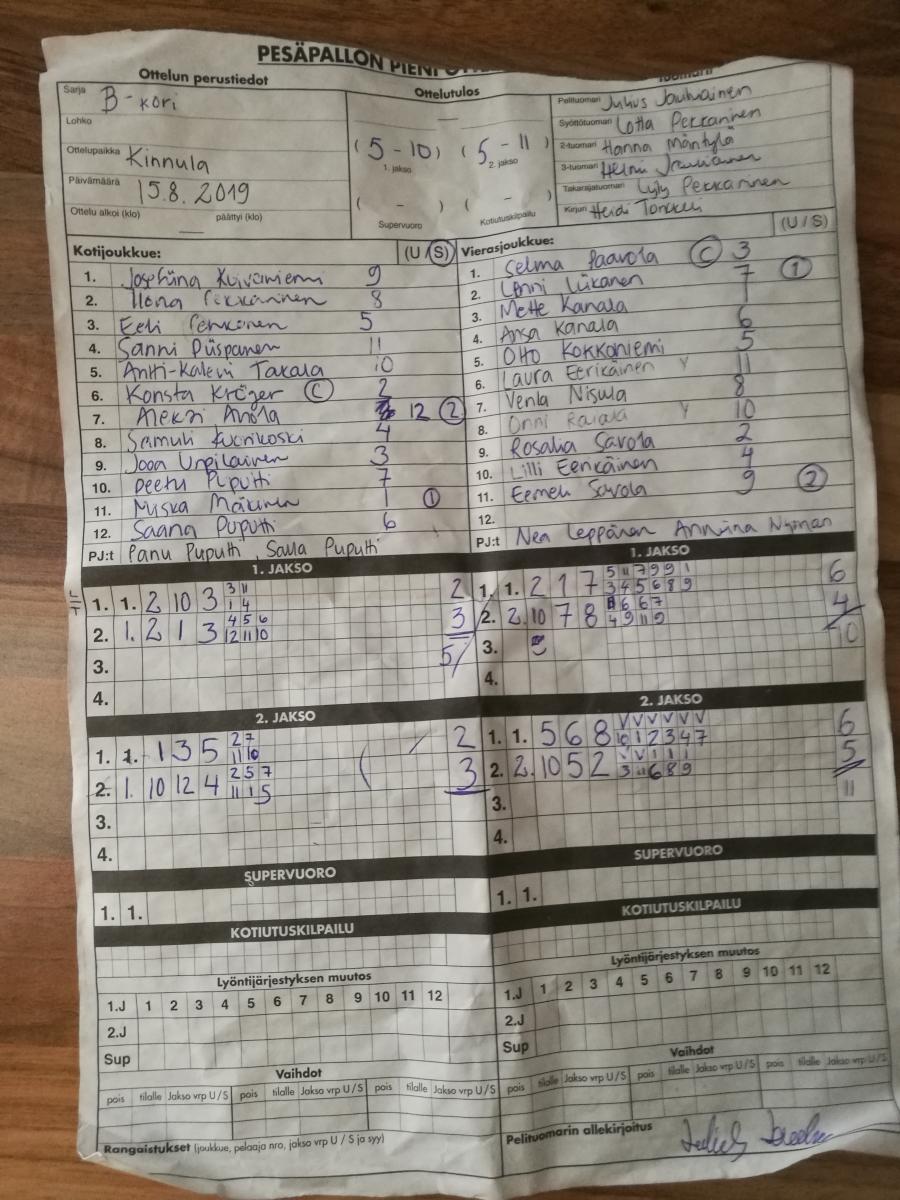 PESÄPALLON PIENI
Ottelun perustiedot
Sarja B-kori
Lohko
Ottelupaikka Kinnula
Päivämäärä 15.8.2019
Ottelu alkoi (klo) — päättyi (klo)
Ottelutulos
—
(5-10) (5-11)
1. jakso 2. jakso
( - ) ( - )
Supervuoro Kotiutuskilpailu
Tuomarit
Pelituomari Julius
Syöttötuomari Lotta Pekkarinen
2-tuomari Hanna Mäntylä
3-tuomari Helmi
Takarajatuomari Lyly Pekkarinen
Kirjuri Heidi
Kotijoukkue: (U/S)
1. Josefiina Kuivaniemi 9
2. Ilona Pekkarinen 8
3. Eeli 5
4. Sanni Piispanen 11
5. Antti-Kalevi Takala 10
6. Konsta Kröger C 2
7. Aleksi Anola 12 2
8. Samuli 4
9. Joona Urpilainen 3
10. Peetu Puputti 7
11. Miska Mäkinen 1 1
12. Saana Puputti 6
PJ:t Panu Puputti, Salla Puputti
Vierasjoukkue: (U/S)
1. Selma Paavola C 3
2. Onni Liikanen 7 1
3. Mette Kanala 1
4. Ansa Kanala 6
5. Otto Kokkoniemi 5
6. Laura Eerikäinen Y 11
7. Venla Nisula 8
8. Onni Y 10
9. Rosalia Savola 2
10. Lilli Eerikäinen 4
11. Eemeli Savola 9 2
12.
PJ:t Nea Leppänen Anniina Nyman
1. JAKSO
L/T
3 11
1. 1. 2 10 3 1 4 2
4 5 6
2. 1. 2 1 3 12 11 10 3
3. 5
4.
1. JAKSO
5 11 7 9 9 1
1. 1. 2 1 7 3 4 5 6 8 9 6
6 6 7
2. 2. 10 7 8 4 9 11 9 4
3. 10
4.
2. JAKSO
2 7
1. 1. 1 3 5 11 10 2
2 5 7
2. 1. 10 12 4 11 1 5 3
3.
4.
2. JAKSO
V V V V V V
1. 1. 5 6 8 10 1 2 3 4 7 6
V V 1 1 1
2. 2. 10 5 2 3 11 6 8 9 5
3. 11
4.
SUPERVUORO
1. 1.
SUPERVUORO
1. 1.
KOTIUTUSKILPAILU
KOTIUTUSKILPAILU
Lyöntijärjestyksen muutos
1.J 1 2 3 4 5 6 7 8 9 10 11 12
2.J
Sup
Lyöntijärjestyksen muutos
1.J 1 2 3 4 5 6 7 8 9 10 11 12
2.J
Sup
Vaihdot
pois tilalle Jakso vrp U/S pois tilalle Jakso vrp U/S pois tilalle Jakso vrp U/S
Vaihdot
pois tilalle Jakso vrp U/S pois tilalle Jakso vrp U/S pois tilalle Jakso vrp U/S
Rangaistukset (joukkue, pelaaja nro, jakso vrp U / S ja syy)
Pelituomarin allekirjoitus